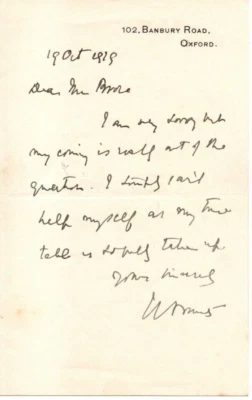 102, BANBURY ROAD,
OXFORD.
19 Oct 1929
Dear Mr
I am very sorry but
my coming is really out of the
question. I simply can't
help myself as my time
table is so fully taken up
Yours sincerely